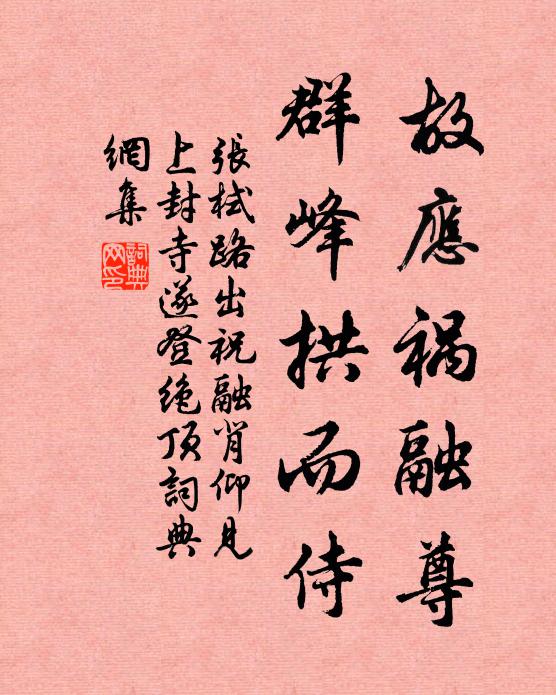 故應祸融尊
群峰拱而侍
張栻路出祝融肖仰見
上封寺遂登绝顶詞典
網集
詞典
网印